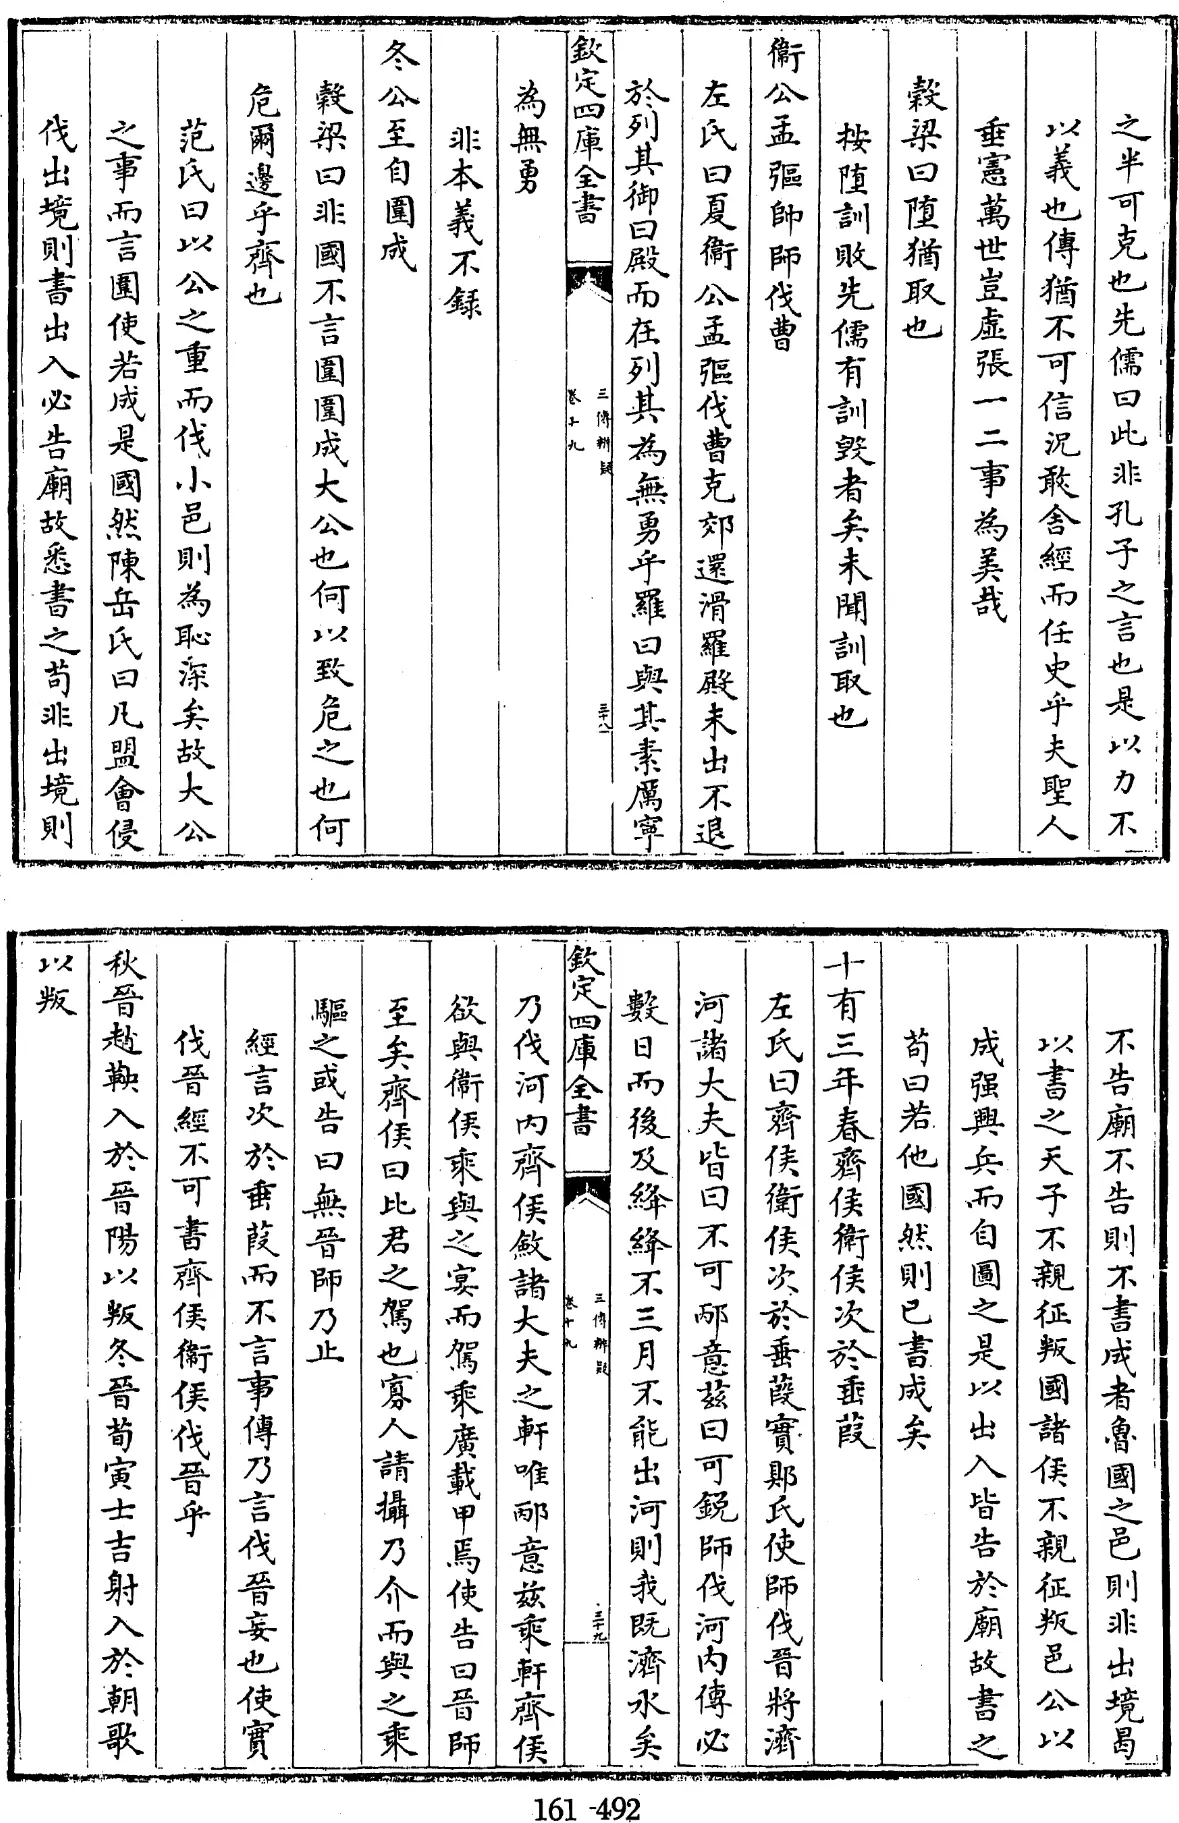 之半可克也先儒曰此非孔子之言也是以力不
以義也傳猶不可信況敢舍經而任史乎夫聖人
垂憲萬世豈虛張一二事為美哉
穀梁曰堕猶取也
按堕訓敗先儒有訓毀者矣未聞訓取也
衞公孟彄帥師伐曹
左氏曰夏衞公孟彄伐曹克郊還滑羅殿未出不退
於列其御曰殿而在列其為無勇乎羅曰與其素厲寧
欽定四庫全書
三傳辨疑
卷十九
三十八
為無勇
非本義不録
冬公至自圍成
穀梁曰非國不言圍圍成大公也何以致危之也何
危爾邊乎齊也
范氏曰以公之重而伐小邑則為恥深矣故大公
之事而言圍使若成是國然陳岳氏曰凡盟會侵
伐出境則書出入必告廟故悉書之茍非出境則
不告廟不告則不書成者魯國之邑則非出境曷
以書之天子不親征叛國諸侯不親征叛邑公以
成强興兵而自圖之是以出入皆告於廟故書之
茍曰若他國然則已書成矣
十有三年春齊侯衞侯次於垂葭
左氏曰齊侯衞侯次於垂葭實郹氏使師伐晉將濟
河諸大夫皆曰不可邴意茲曰可鋭師伐河内傳必
數日而後及絳絳不三月不能出河則我既濟水矣
欽定四庫全書
三傳辨疑
卷十九
三十九
乃伐河内齊侯斂諸大夫之軒唯邴意兹乘軒齊侯
欲與衞侯乘與之宴而駕乘廣載甲焉使告曰晉師
至矣齊侯曰比君之駕也寡人請攝乃介而與之乘
驅之或告曰無晉師乃止
經言次於垂葭而不言事傳乃言伐晉妄也使實
伐晉經不可書齊侯衞侯伐晉乎
秋晉趙鞅入於晉陽以叛冬晉荀寅士吉射入於朝歌
以叛
161-492